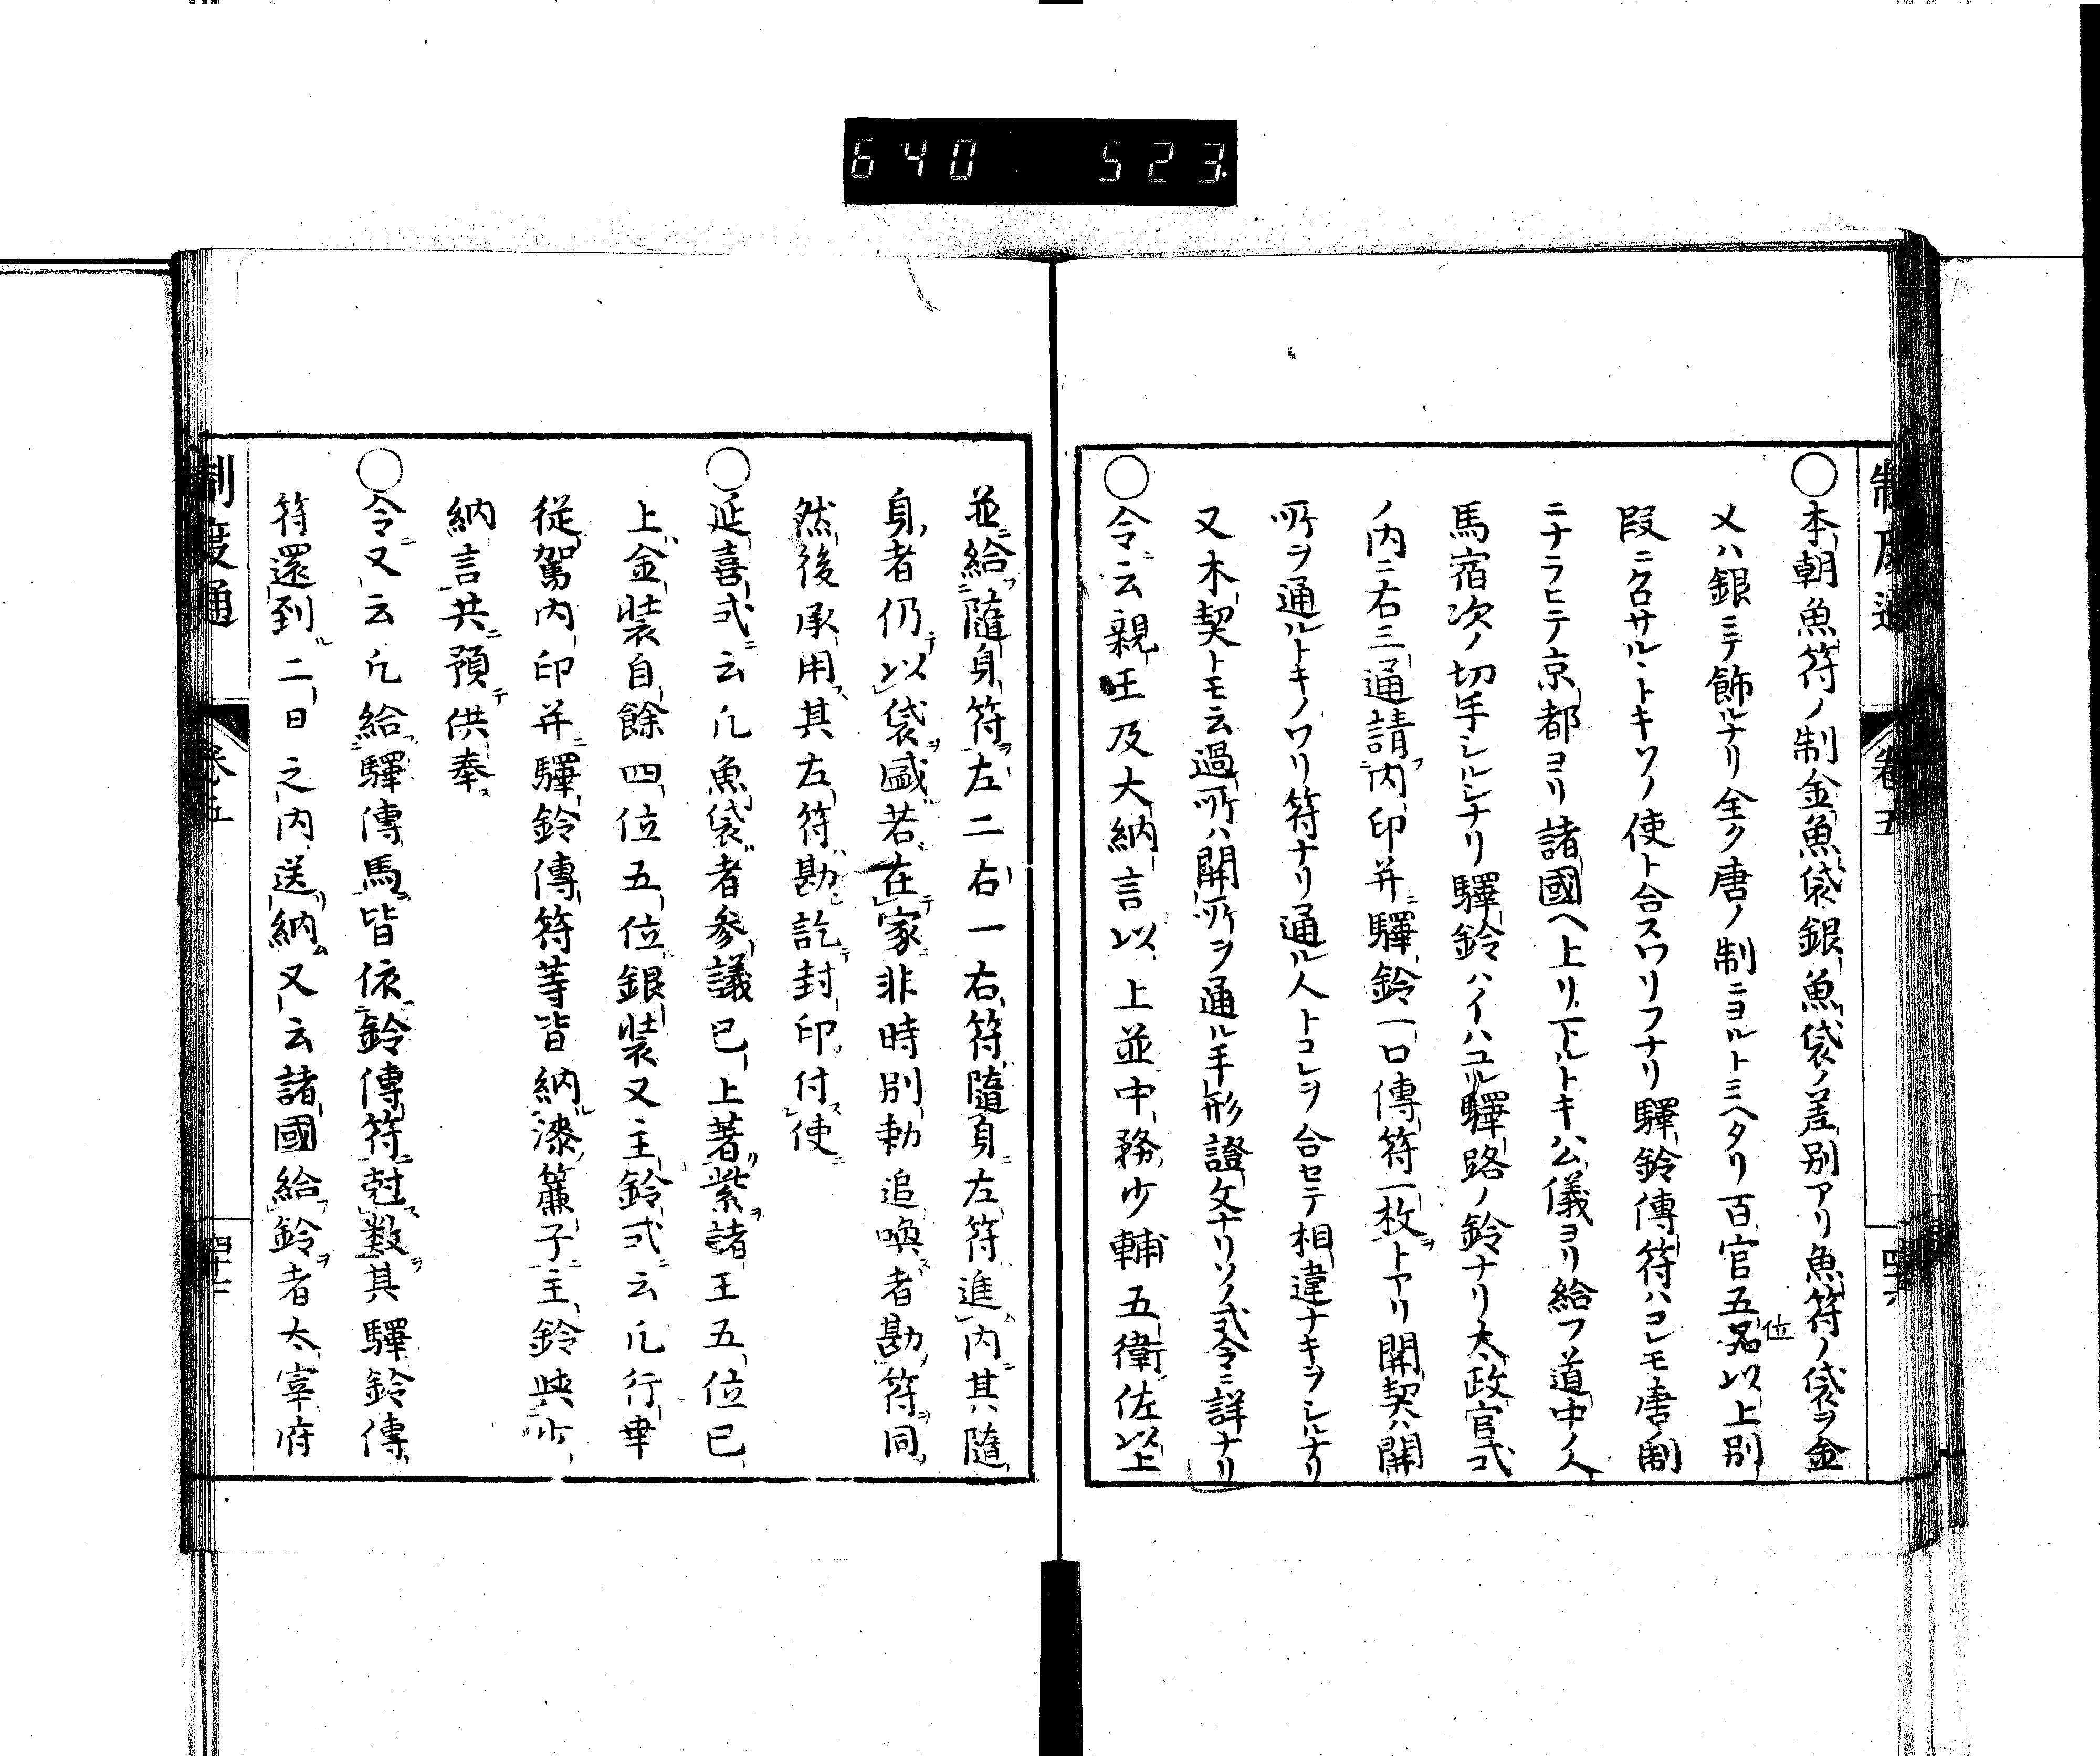 640 523.
制度通 卷五 四十六
○本朝魚符ノ制金魚袋銀魚袋ノ差別アリ魚符ノ袋ヲ金
又ハ銀ニテ飾ルナリ全ク唐ノ制ニヨルトミヘタリ百官五位以上別
段ニ召サルヽトキソノ使ト合スワリフナリ驛鈴傳符ハコレモ唐ノ制
ニナラヒテ京都ヨリ諸國ヘ上リ下ルトキ公儀ヨリ給フ道中ノ人
馬宿次ノ切手シルシナリ驛鈴ハイハユル驛路ノ鈴ナリ太政官式
ノ内ニ右三通請内印并驛鈴一口傳符一枚トアリ開契ハ開
所ヲ通ルトキノワリ符ナリ通ル人トコレヲ合セテ相違ナキヲシルナリ
又木契トモ云過所ハ開所ヲ通ル手形證文ナリソノ式令ニ詳ナリ
○令ニ云親王及大納言以上並中務少輔五衛佐以上
並給隨身符左二右一右符隨身左符進内其隨
身者仍以袋盛若在家非時別勅追喚者勘符同
然後承用其左符勘訖封印付使
○延喜式云凡魚袋者參議已上著紫諸王五位已
上金裝自餘四位五位銀裝又主鈴式云凡行幸
從駕内印并驛鈴傳符等皆納漆簾子主鈴與少
納言共預供奉
○令又云凡給驛傳馬皆依鈴傳符尅数其驛鈴傳
符還到二日之内送納又云諸國給鈴者太宰府
制度通 卷五 四十七